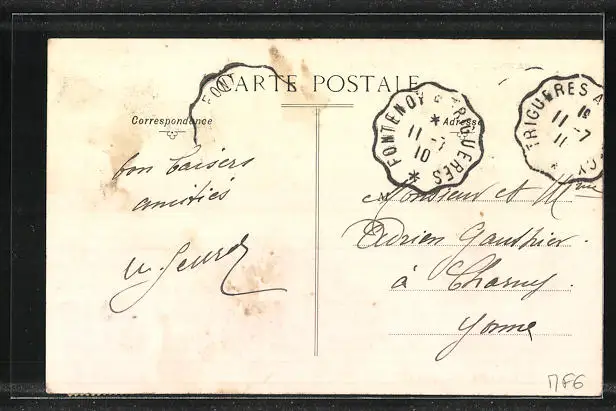 CARTE POSTALE
Correspondance
Adresse
FONT
FONTENOY À TRIGUERES
*
11 -7
10
*
TRIGUERES A
18
11 -7
11
*
CY
bon baisers
amitiés
Monsieur et Mme
Adrien Gauthier
à Charny
Yonne